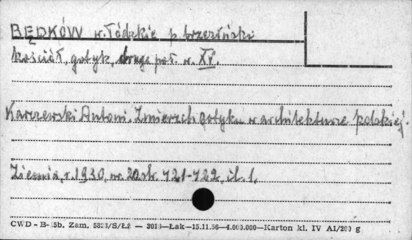 BĘDKÓW w. łódzkie p. brzeziński
kościół, gotyk, druga poł. w. XV.
Karzewski Antoni. Zmierzch gotyku w architekturze polskiej.
Ziemia, r. 1930, nr. 20 str. 421-422, il. 1,
CWD - B-35b. Zam. 5323/S/Łż — 2016—Łak—15.11.56—4.000.000—Karton kl. IV A1/200 g